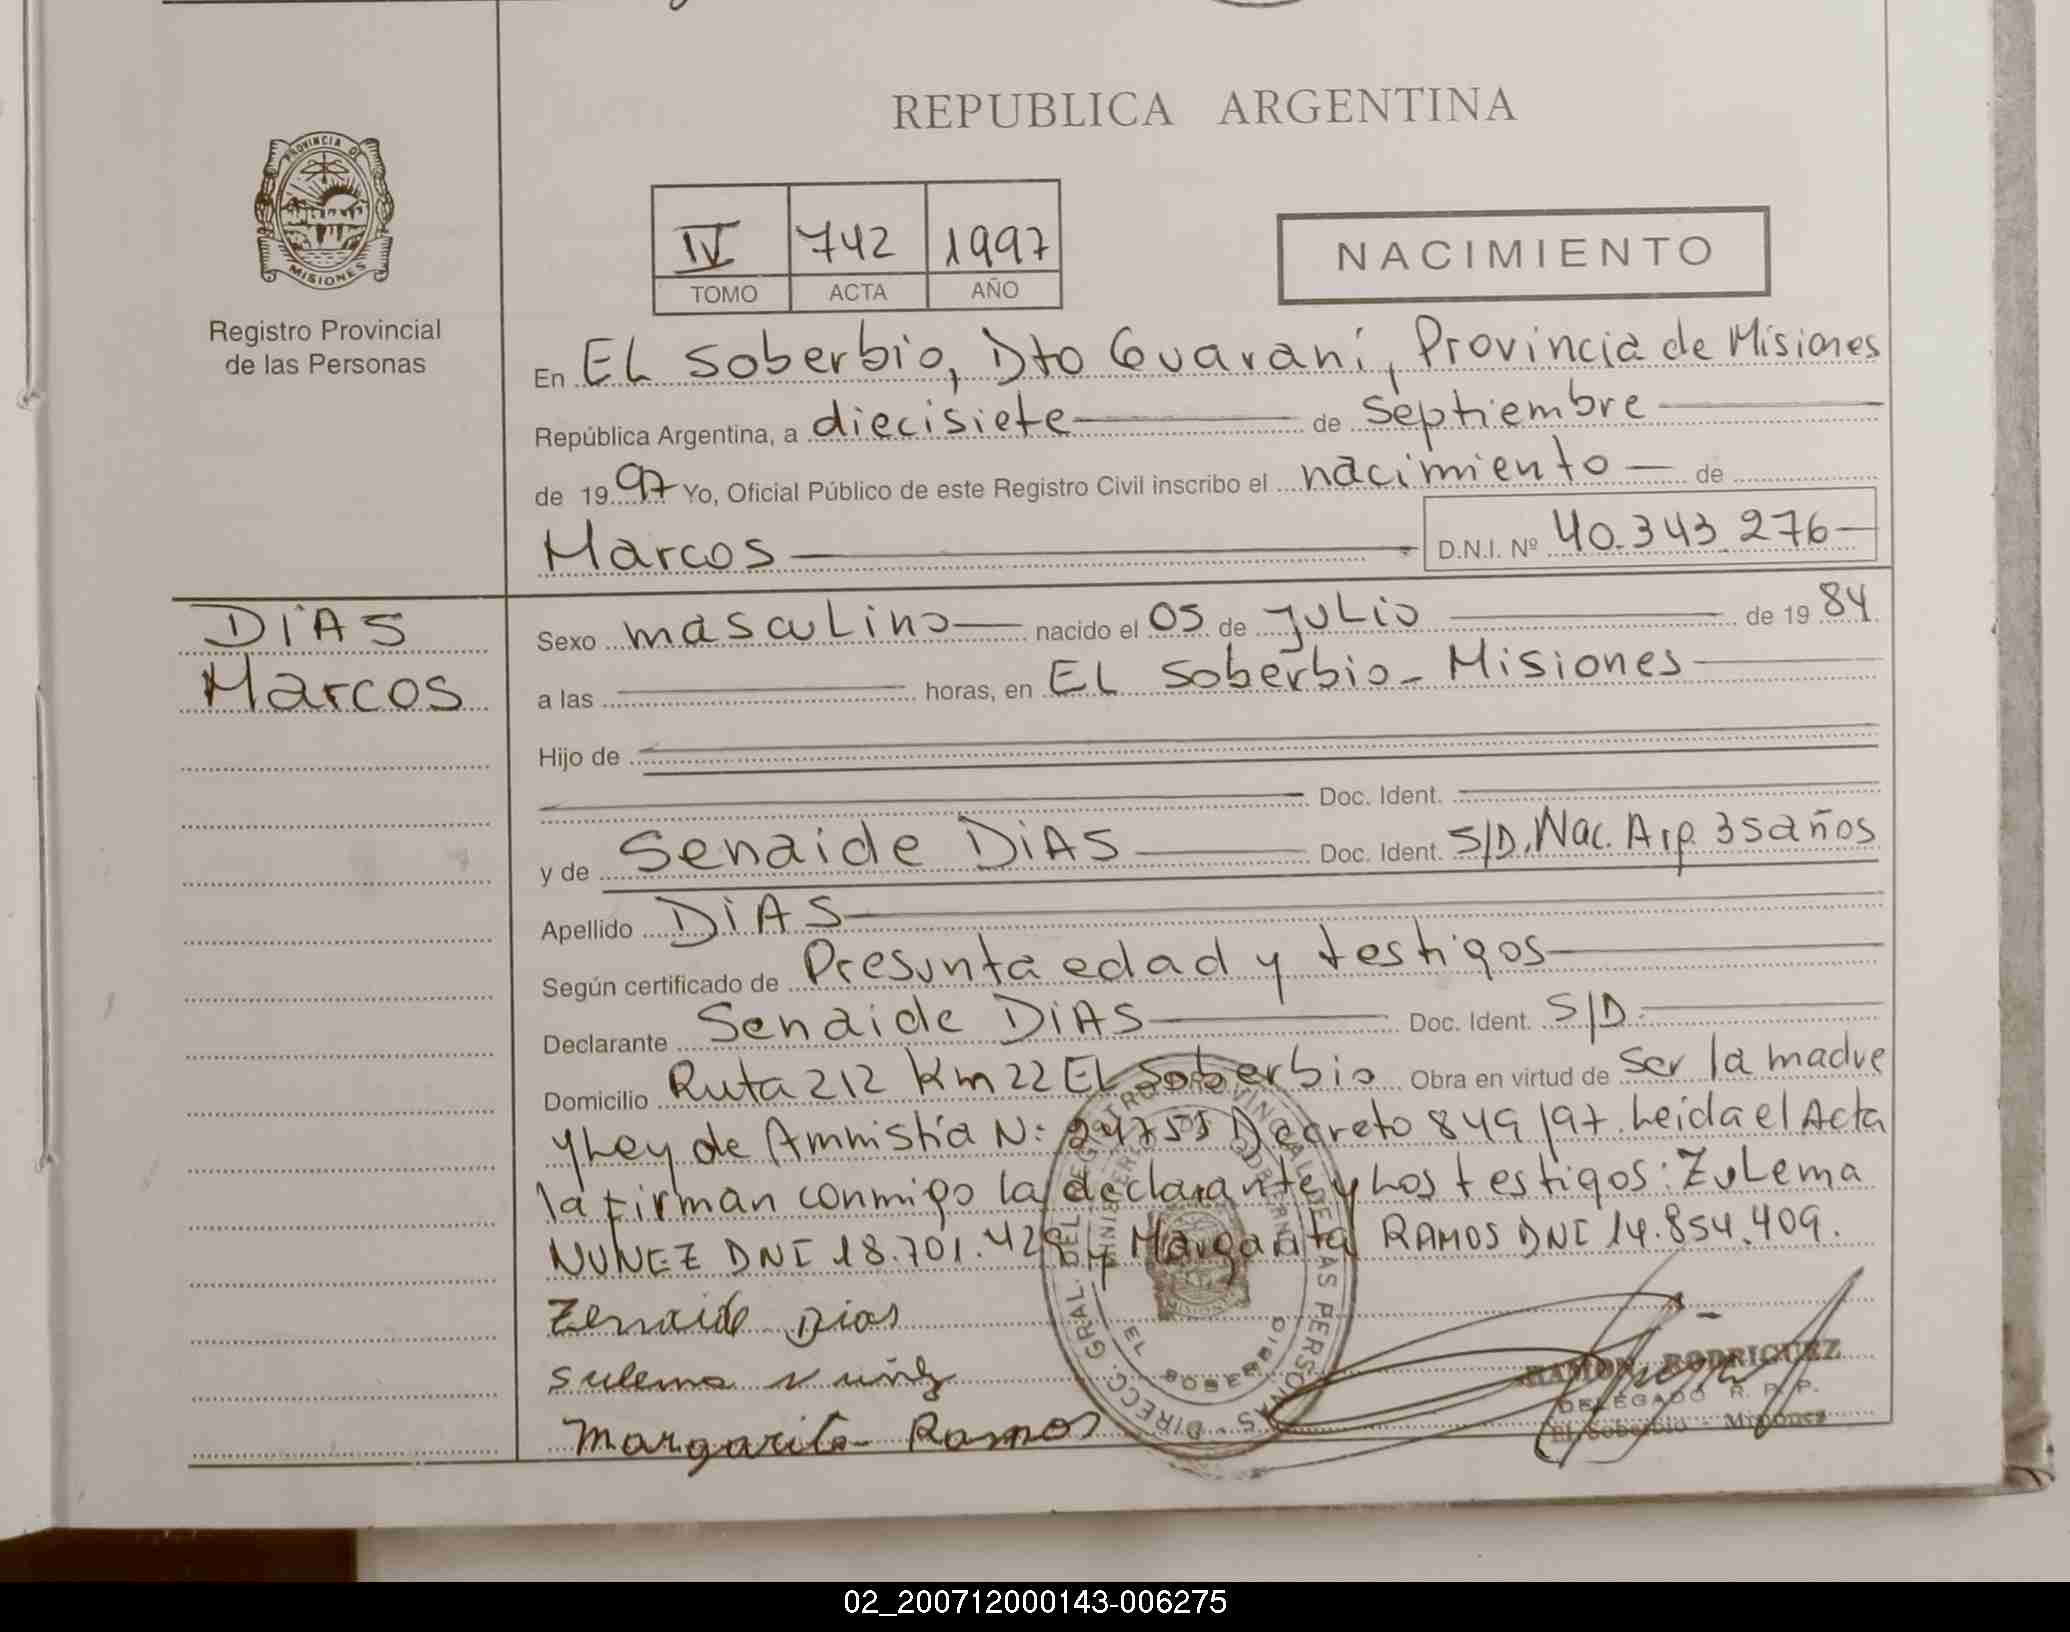 REPUBLICA ARGENTINA
PROVINCIA DE
MISIONES
Registro Provincial
de las Personas
IV 742 1997
TOMO ACTA AÑO
NACIMIENTO
En EL Soberbio, Dto Guaraní, Provincia de Misiones
República Argentina, a diecisiete de septiembre
de 1997 Yo, Oficial Público de este Registro Civil inscribo el nacimiento de
Marcos D.N.I. Nº 40.343.276
DiAS
Marcos
Sexo masculino nacido el 05 de julio de 1984
a las horas, en EL Soberbio - Misiones
Hijo de
Doc. Ident.
y de Senaide DiAS Doc. Ident. S/D. Nac. Arg. 35 años
Apellido DiAS
Según certificado de Presunta edad y testigos
Declarante Senaide DiAS Doc. Ident. S/D.
Domicilio Ruta 212 Km 22 EL Soberbio Obra en virtud de ser la madre
y Ley de Amnistía N: 24755 Decreto 849/97. Leida el Acta
la firman conmigo la declarante y Los testigos: Zulema
NUNEZ DNI 18.701.429 y Margarita RAMOS DNI 14.854.409.
Zenaide Dias
Sulema Nuñez
Margarita Ramos
DIRECC. GRAL. DEL REGISTRO PROVINCIAL DE LAS PERSONAS
EL SOBERBIO
RAMON RODRIGUEZ
DELEGADO R. P. P.
El Soberbio - Misiones
02_200712000143-006275